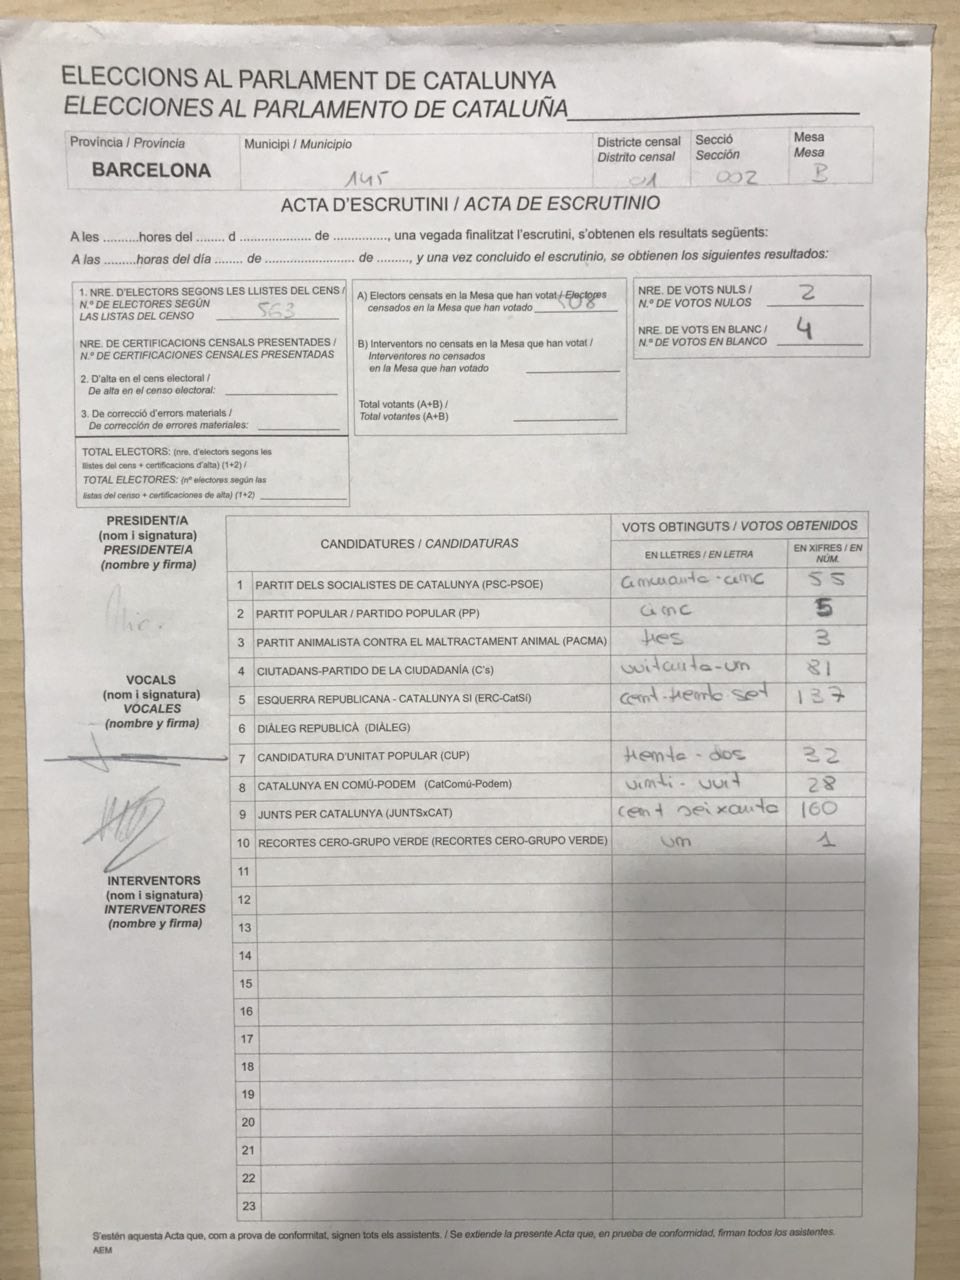 ELECCIONS AL PARLAMENT DE CATALUNYA
ELECCIONES AL PARLAMENTO DE CATALUÑA
Província / Provincia
BARCELONA
Municipi / Municipio
145
Districte censal
Distrito censal
01
Secció
Sección
002
Mesa
Mesa
B
ACTA D'ESCRUTINI / ACTA DE ESCRUTINIO
A les ..........hores del ........ d ..................... de ................, una vegada finalitzat l'escrutini, s'obtenen els resultats següents:
A las .........horas del día ........ de .......................... de .........., y una vez concluido el escrutinio, se obtienen los siguientes resultados:
1. NRE. D'ELECTORS SEGONS LES LLISTES DEL CENS /
N.º DE ELECTORES SEGÚN
LAS LISTAS DEL CENSO 563
NRE. DE CERTIFICACIONS CENSALS PRESENTADES /
N.º DE CERTIFICACIONES CENSALES PRESENTADAS
2. D'alta en el cens electoral /
De alta en el censo electoral:
3. De correcció d'errors materials /
De corrección de errores materiales:
TOTAL ELECTORS: (nre. d'electors segons les
llistes del cens + certificacions d'alta) (1+2) /
TOTAL ELECTORES: (nº electores según las
listas del censo + certificaciones de alta) (1+2)
A) Electors censats en la Mesa que han votat / Electores
censados en la Mesa que han votado 508
B) Interventors no censats en la Mesa que han votat /
Interventores no censados
en la Mesa que han votado
Total votants (A+B) /
Total votantes (A+B)
NRE. DE VOTS NULS /
N.º DE VOTOS NULOS 2
NRE. DE VOTS EN BLANC /
N.º DE VOTOS EN BLANCO 4
PRESIDENT/A
(nom i signatura)
PRESIDENTE/A
(nombre y firma)
VOCALS
(nom i signatura)
VOCALES
(nombre y firma)
INTERVENTORS
(nom i signatura)
INTERVENTORES
(nombre y firma)
CANDIDATURES / CANDIDATURAS
VOTS OBTINGUTS / VOTOS OBTENIDOS
EN LLETRES / EN LETRA
EN XIFRES / EN
NÚM.
1 PARTIT DELS SOCIALISTES DE CATALUNYA (PSC-PSOE) cinquanta-cinc 55
2 PARTIT POPULAR / PARTIDO POPULAR (PP) cinc 5
3 PARTIT ANIMALISTA CONTRA EL MALTRACTAMENT ANIMAL (PACMA) tres 3
4 CIUTADANS-PARTIDO DE LA CIUDADANÍA (C's) vuitanta-un 81
5 ESQUERRA REPUBLICANA - CATALUNYA SI (ERC-CatSí) cent-trenta set 137
6 DIÀLEG REPUBLICÀ (DIÀLEG)
7 CANDIDATURA D'UNITAT POPULAR (CUP) trenta-dos 32
8 CATALUNYA EN COMÚ-PODEM (CatComú-Podem) vinti-vuit 28
9 JUNTS PER CATALUNYA (JUNTSxCAT) cent seixanta 160
10 RECORTES CERO-GRUPO VERDE (RECORTES CERO-GRUPO VERDE) un 1
11
12
13
14
15
16
17
18
19
20
21
22
23
S'estén aquesta Acta que, com a prova de conformitat, signen tots els assistents. / Se extiende la presente Acta que, en prueba de conformidad, firman todos los asistentes.
AEM